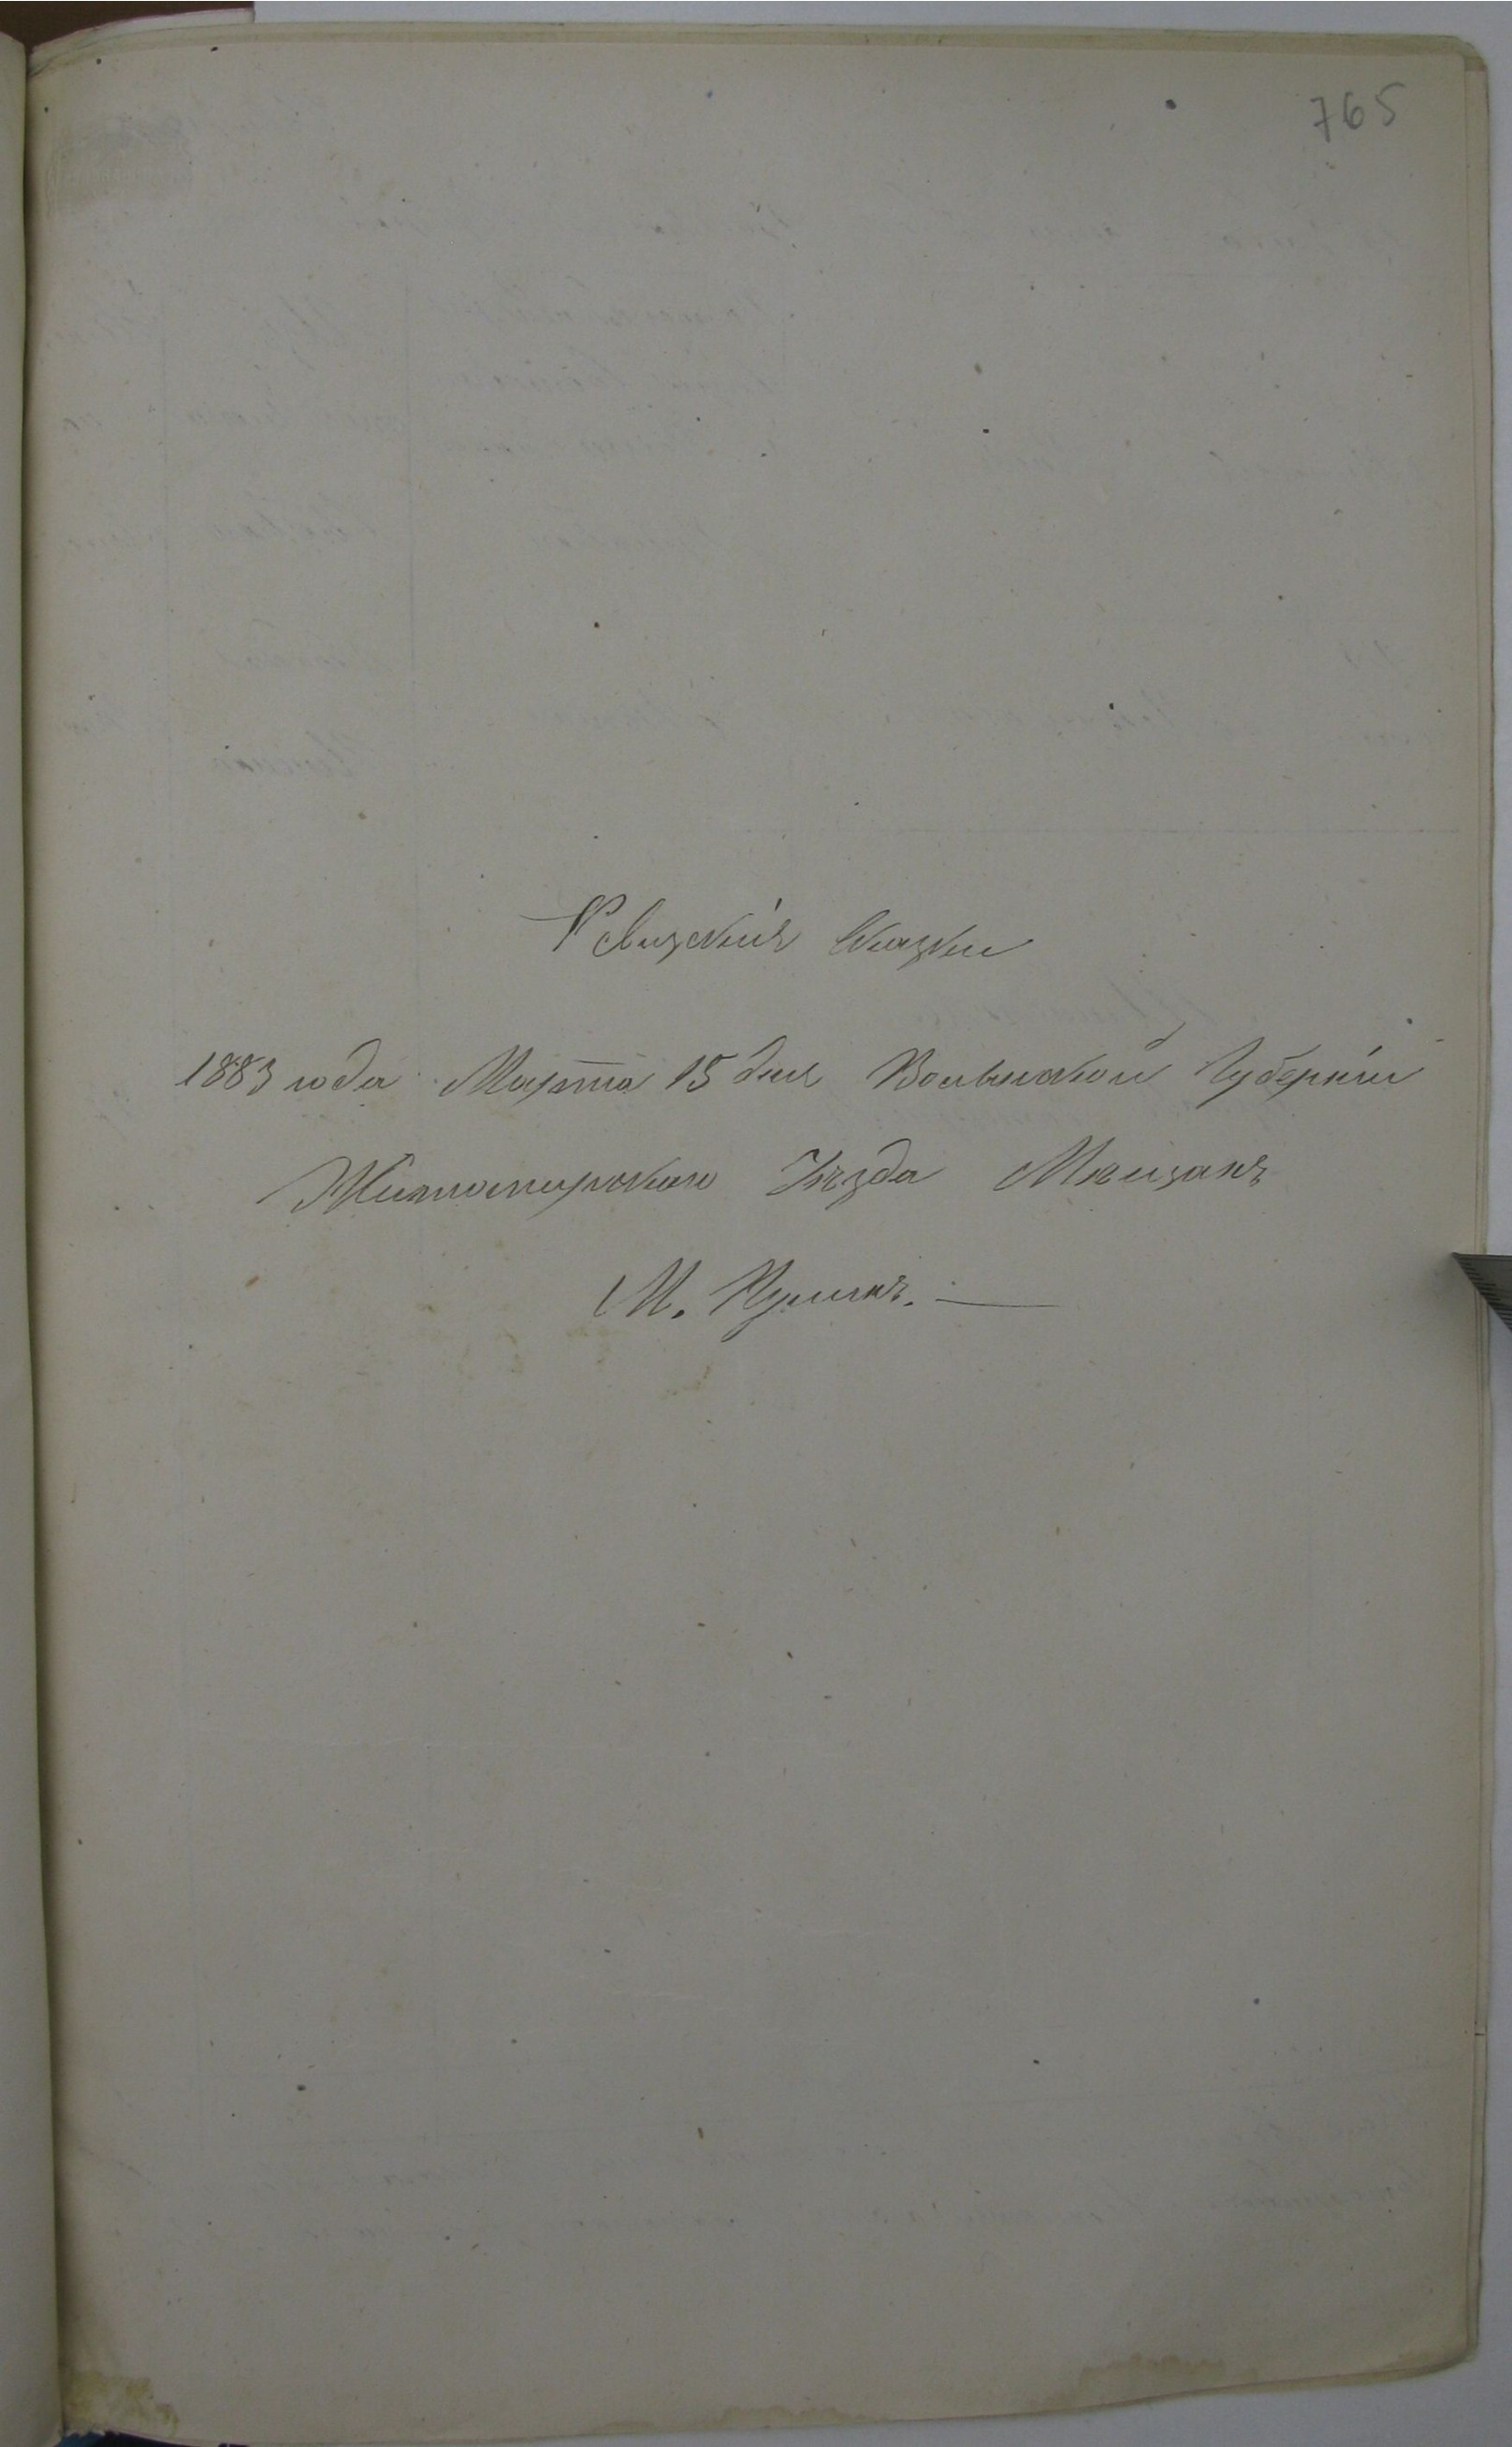 765
Ревизскія сказки
1883 года Марта 15 дня Волынской Губерніи
Житомирскаго Уѣзда Мѣщанъ
М. Кутнъ.